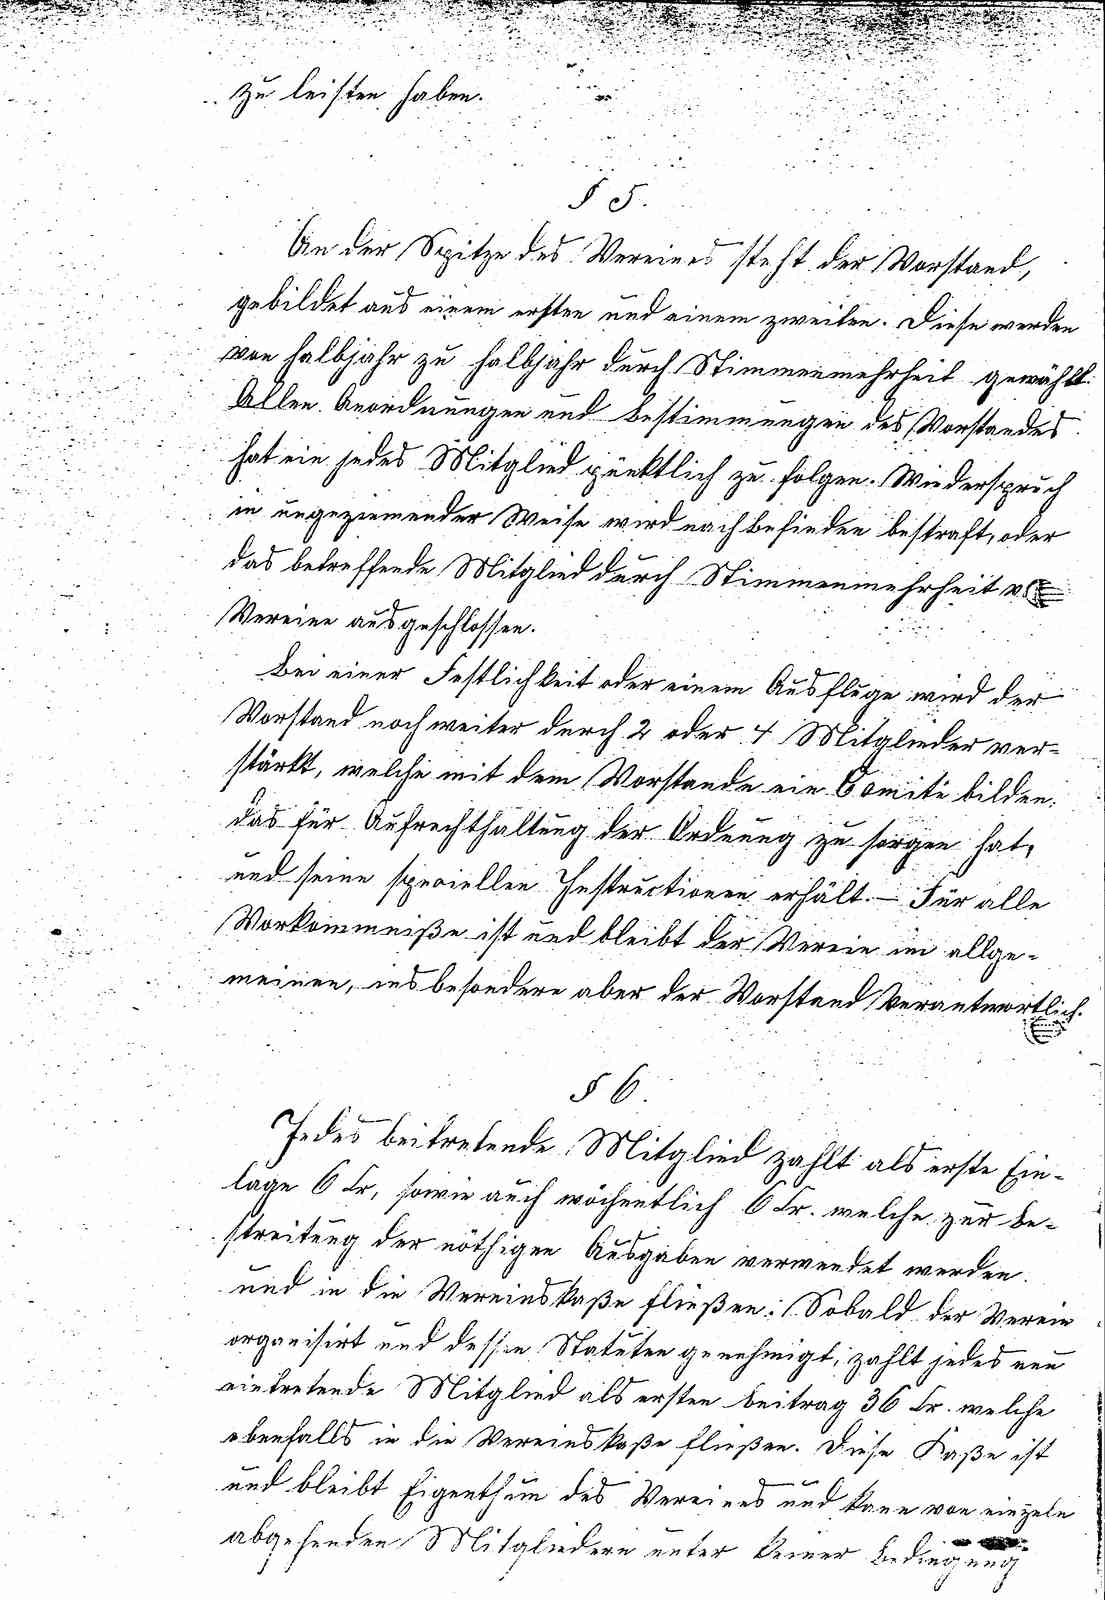 zu leisten haben.
§ 5.
An der Spitze des Vereines steht der Vorstand,
gebildet aus einem ersten und einem zweiten. Diese werden
von halbjahr zu halbjahr durch Stimmenmehrheit gewählt.
Allen Anordnungen und Bestimmungen des Vorstandes
hat ein jedes Mitglied pünktlich zu folgen. Wiederspruch
in ungeziemender Weise wird nach Befinden bestraft, oder
das betreffende Mitglied durch Stimmenmehrheit
Vereine ausgeschlossen.
Bei einer Festlichkeit oder einem Ausfluge wird der
Vorstand noch weiter durch 2 oder 4 Mitglieder ver-
stärkt, welche mit dem Vorstande ein Comité bilden,
das für Aufrechthaltung der Ordnung zu sorgen hat,
und seine speciellen Instructionen erhält. – Für alle
Vorkommniße ist und bleibt der Verein im allge-
meinen, insbesondere aber der Vorstand Verantwortlich.
§ 6.
Jedes beitretende Mitglied zahlt als erste Ein-
lage 6 Kr, sowie auch wöchentlich 6 Kr. welche zur Be-
streitung der nöthigen Ausgaben verwendet werden
und in die Vereinskaße fließen. Sobald der Verein
organisirt und dessen Statuten genehmigt, zahlt jedes neu
eintretende Mitglied als ersten Beitrag 36 Kr. welche
ebenfalls in die Vereinskaße fließen. Diese Kaße ist
und bleibt Eigenthum des Vereines und kann von einzeln
abgehenden Mitgliedern unter keiner Bedingung